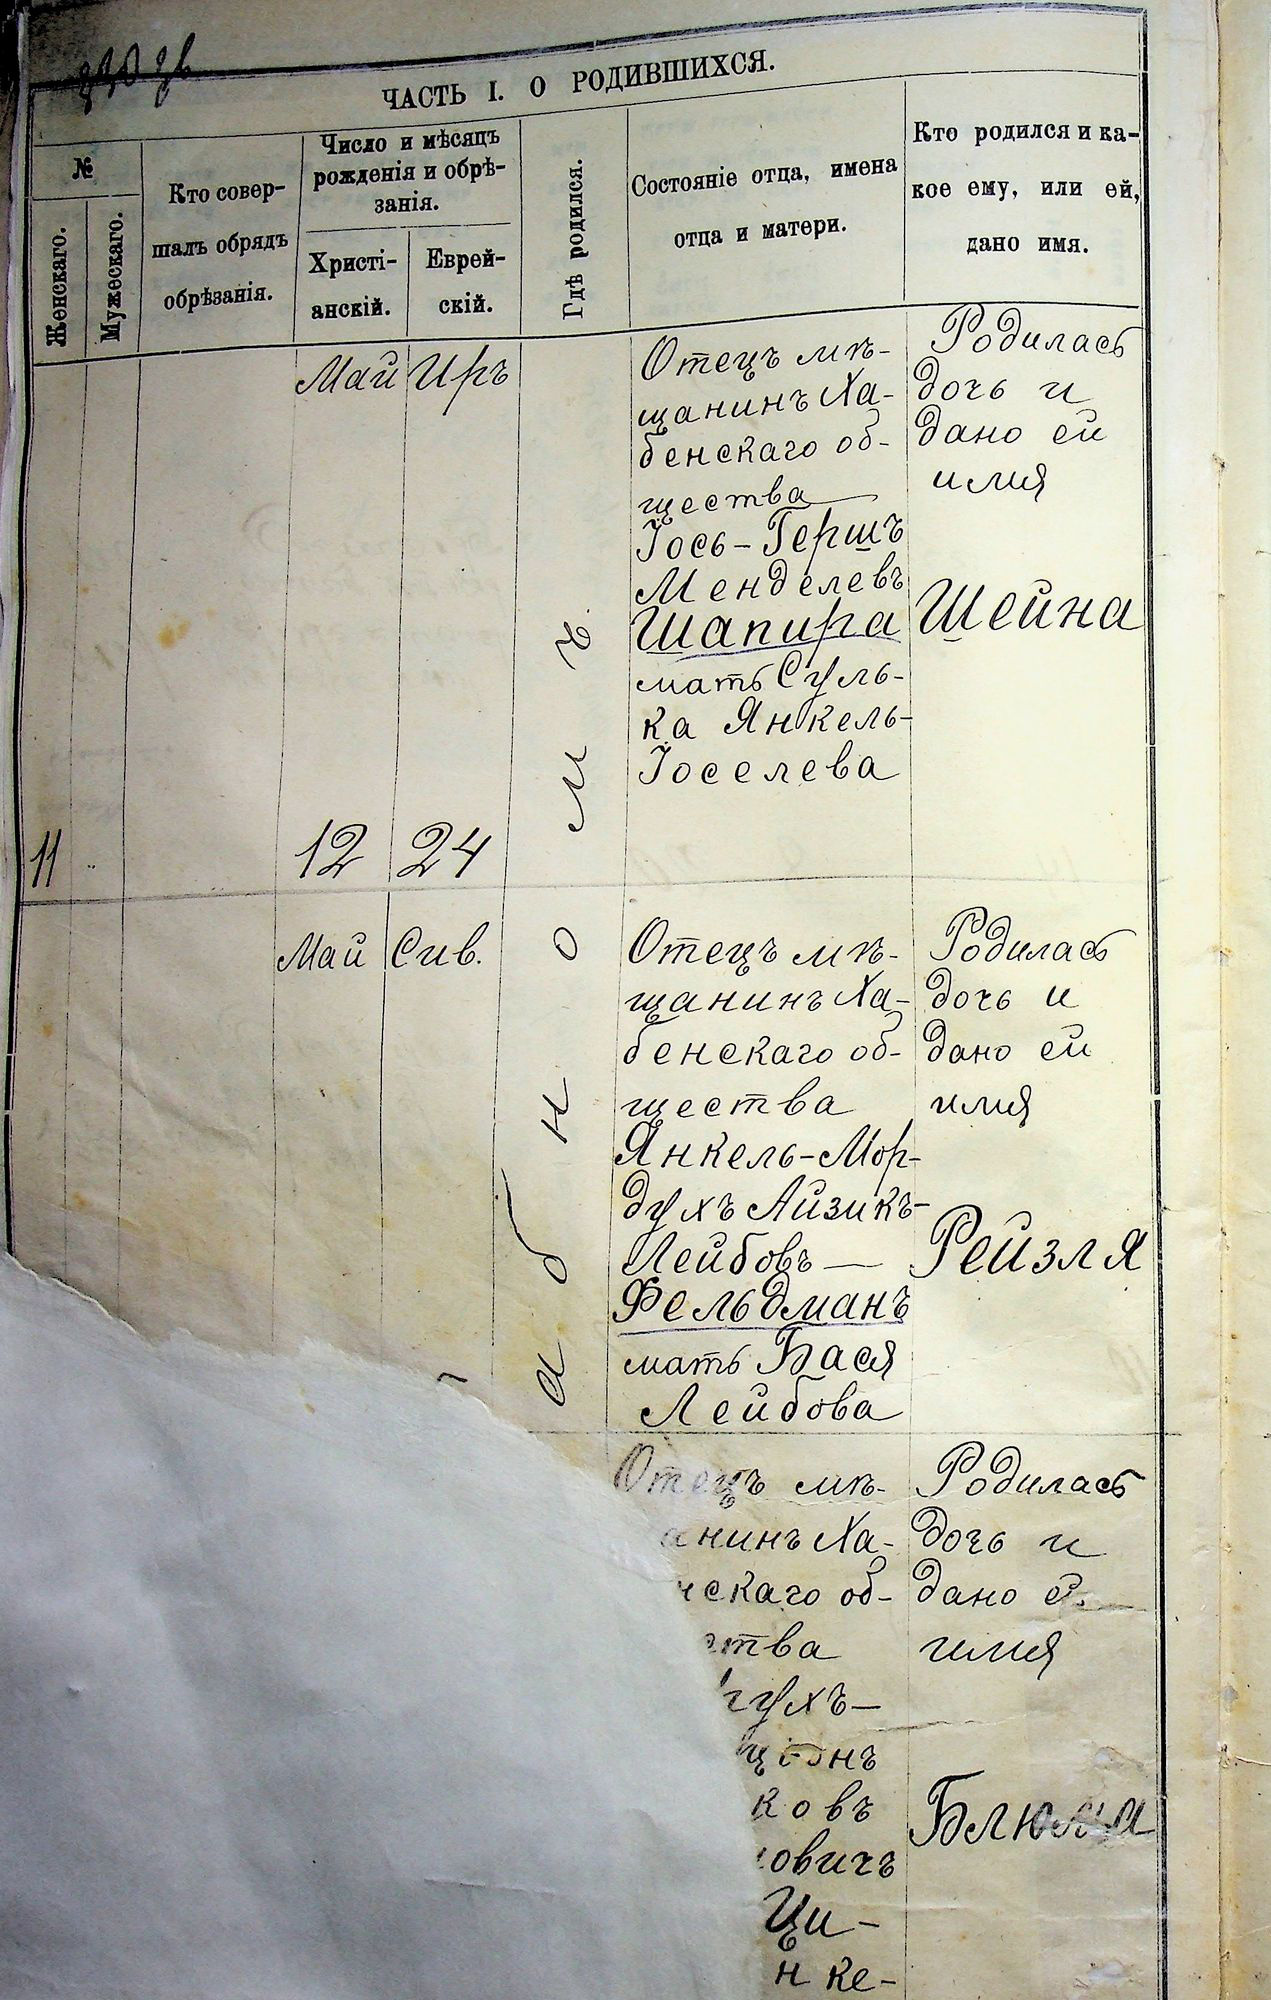 ЧАСТЬ I. О РОДИВШИХСЯ.
№
Женскаго.
Мужескаго.
Кто совер-
шалъ обрядъ
обрѣзанія.
Число и мѣсяцъ
рожденія и обрѣ-
занія.
Христі-
анскій.
Еврей-
скій.
Гдѣ родился.
Состояніе отца, имена
отца и матери.
Кто родился и ка-
кое ему, или ей,
дано имя.
11
Май
12
Иръ
24
Отецъ мѣ-
щанинъ Ха-
бенскаго об-
щества
Іось-Гершъ
Менделевъ
Шапира
мать Суль-
ка Янкель-
Іоселева
Родилась
дочь и
дано ей
имя
Шейна
Май
Сив.
Отецъ мѣ-
щанинъ Ха-
бенскаго об-
щества
Янкель-Мор-
духъ Айзикъ-
Лейбовъ
Фельдманъ
мать Бася
Лейбова
Родилась
дочь и
дано ей
имя
Рейзля
Отецъ мѣ-
анинъ Ха-
нскаго об-
ства
ухъ-
нъ
ковъ
овичъ
Ци-
нке-
Родилась
дочь и
дано ей
имя
Блюма